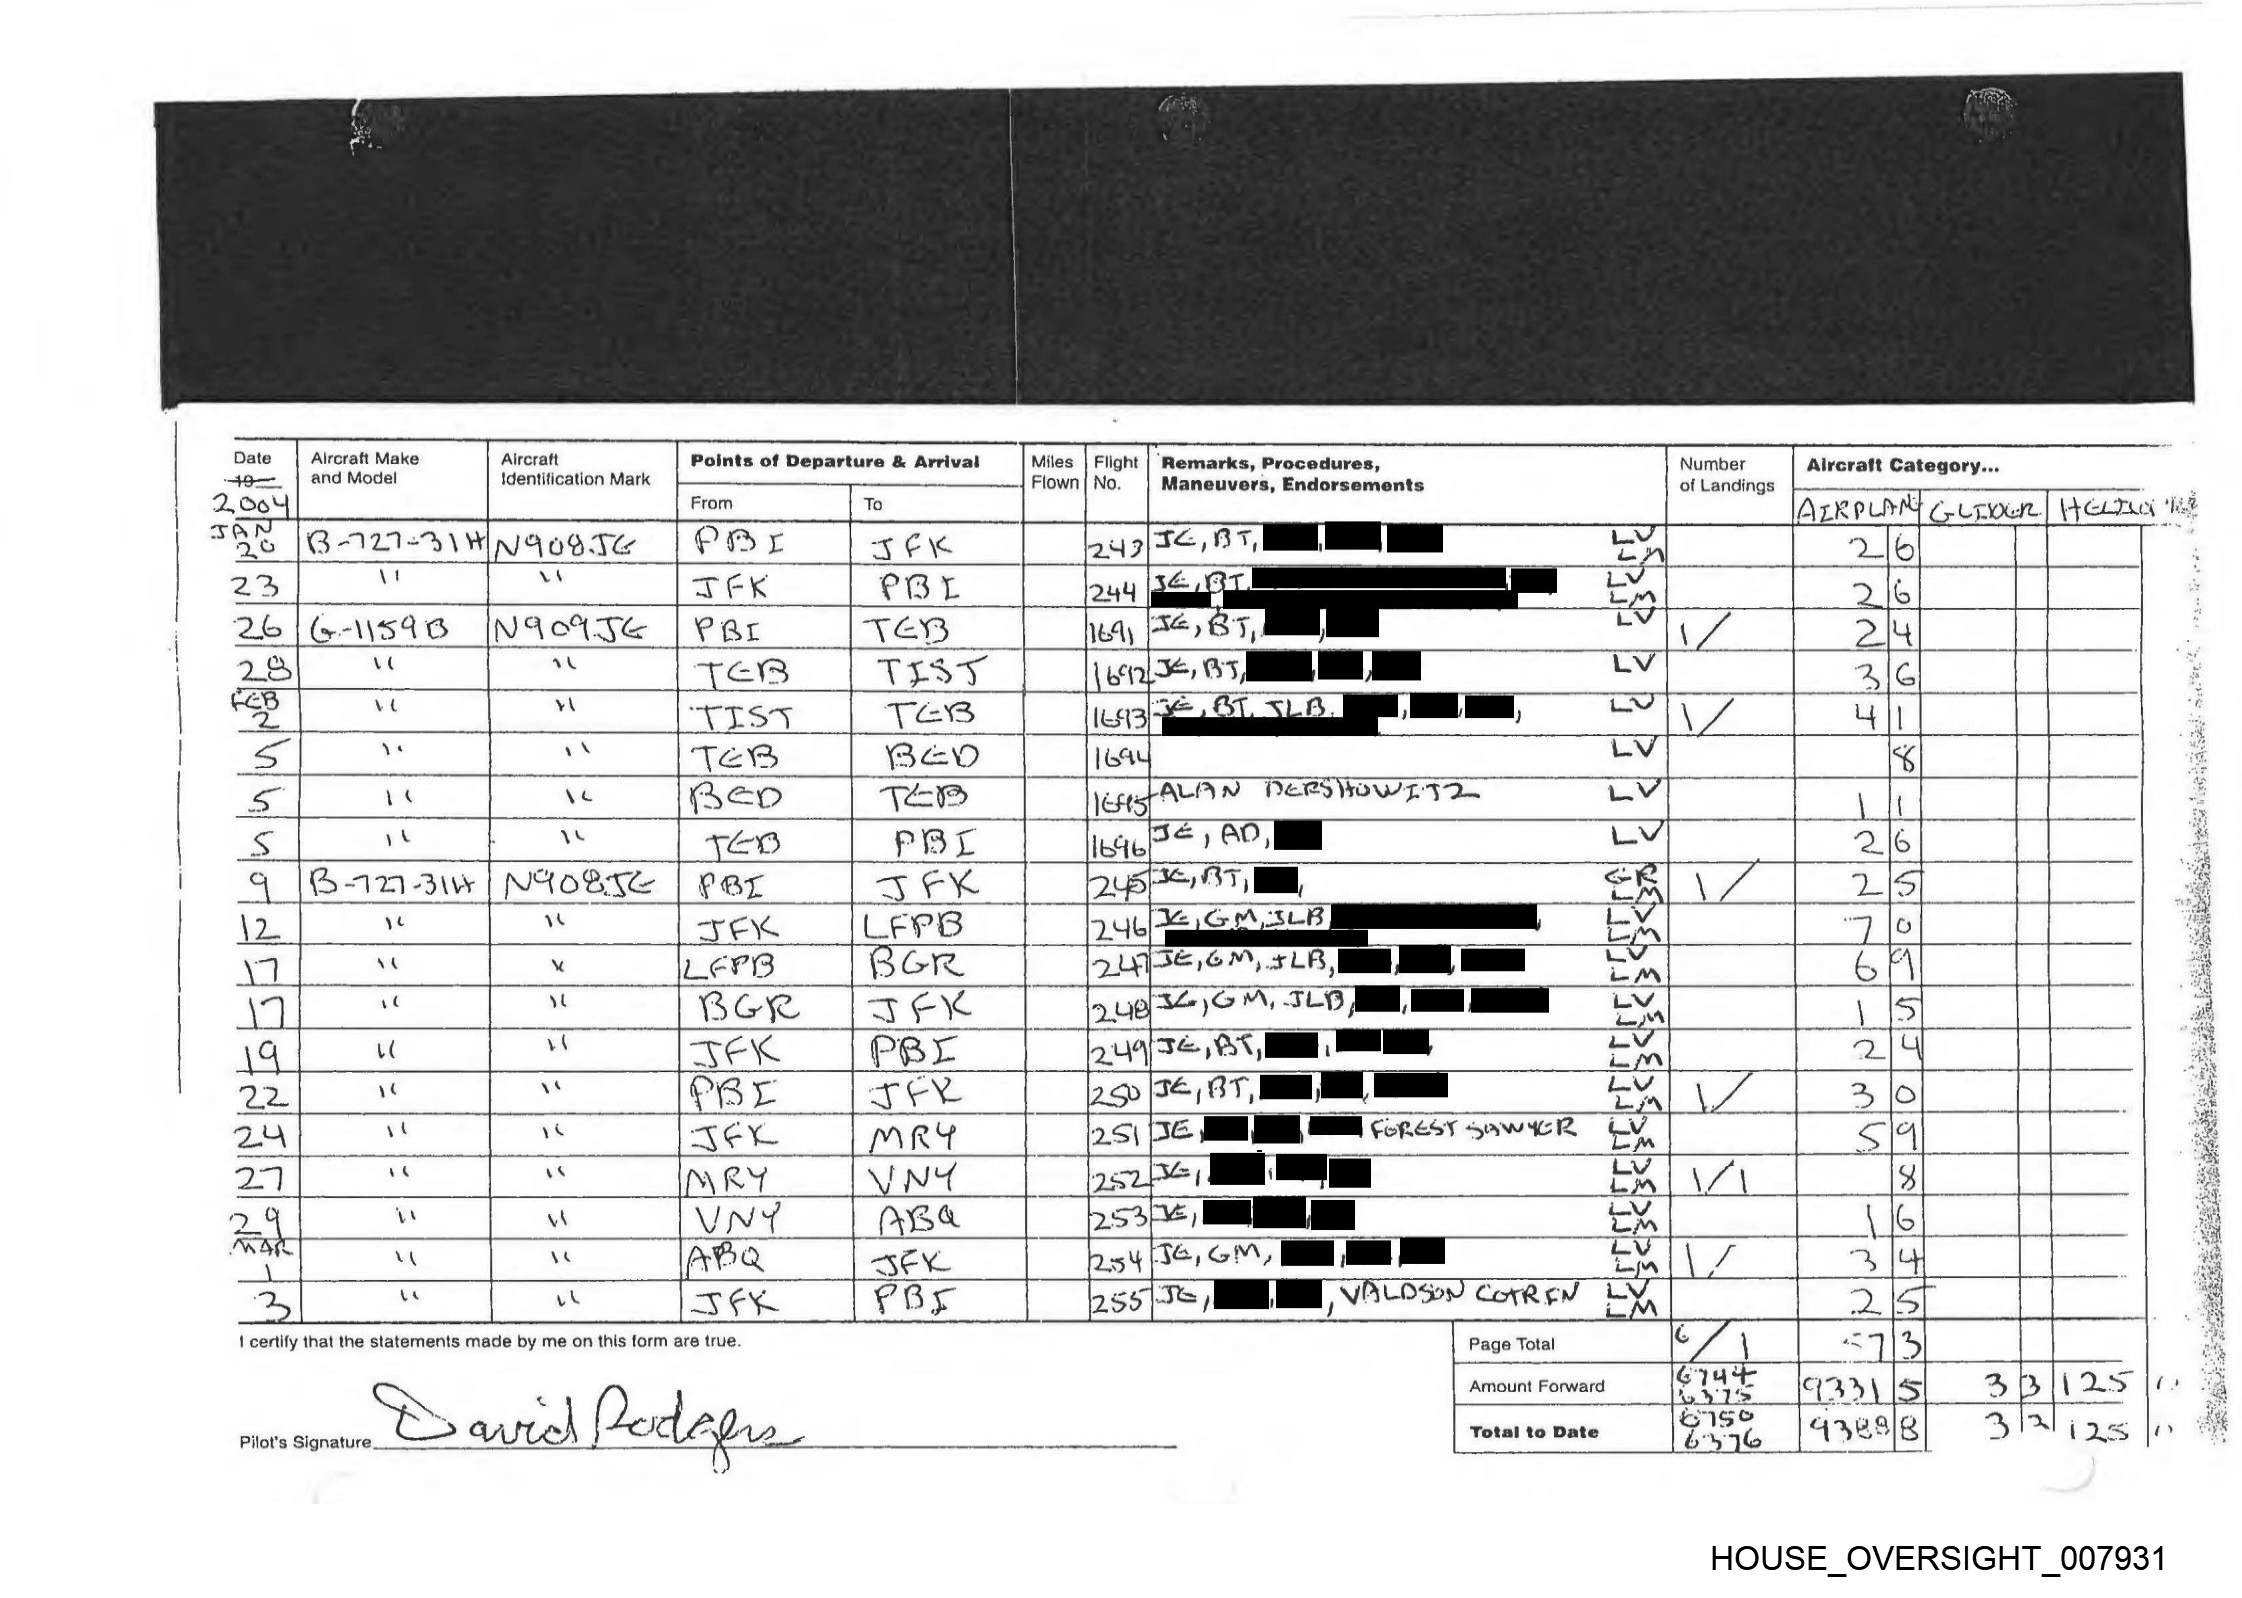 Date Aircraft Make and Model Aircraft Identification Mark Points of Departure & Arrival Miles Flown Flight No. Remarks, Procedures, Maneuvers, Endorsements Number of Landings Aircraft Category...
19
2004 From To AIRPLAN GLIDER
JAN 20 B-727-31H N908JE PBI JFK 243 JE, BT, LV LM 2 6
23 " " JFK PBI 244 JE, BT, LV LM 2 6
26 G-1159B N909JE PBI TEB 1691 JE, BT, LV 1/ 2 4
28 " " TEB TIST 1692 JE, BT, LV 3 6
FEB 2 " " TIST TEB 1693 JE, BT, JLB, LV 1/ 4 1
5 " " TEB BED 1694 LV 8
5 " " BED TEB 1695 ALAN DERSHOWITZ LV 1 1
5 " " TEB PBI 1696 JE, AD, LV 2 6
9 B-727-31H N908JE PBI JFK 245 JE, BT, GR LM 1/ 2 5
12 " " JFK LFPB 246 JE, GM, JLB LV LM 7 0
17 " " LFPB BGR 247 JE, GM, JLB, LV LM 6 9
17 " " BGR JFK 248 JE, GM, JLB, LV LM 1 5
19 " " JFK PBI 249 JE, BT, LV LM 2 4
22 " " PBI JFK 250 JE, BT, LV LM 1/ 3 0
24 " " JFK MRY 251 JE, FOREST SAWYER LV LM 5 9
27 " " MRY VNY 252 JE, LV LM 1/1 8
29 " " VNY ABQ 253 JE, LV LM 1 6
MAR 1 " " ABQ JFK 254 JE, GM, LV LM 1/ 3 4
3 " " JFK PBI 255 JE, , VALDSON COTRIN LV LM 2 5
I certify that the statements made by me on this form are true. Page Total 6/1 57 3
Amount Forward 6744 6375 9331 5 3 3 125
Pilot's Signature David Rodgers Total to Date 6750 6376 9388 8 3 3 125
HOUSE_OVERSIGHT_007931